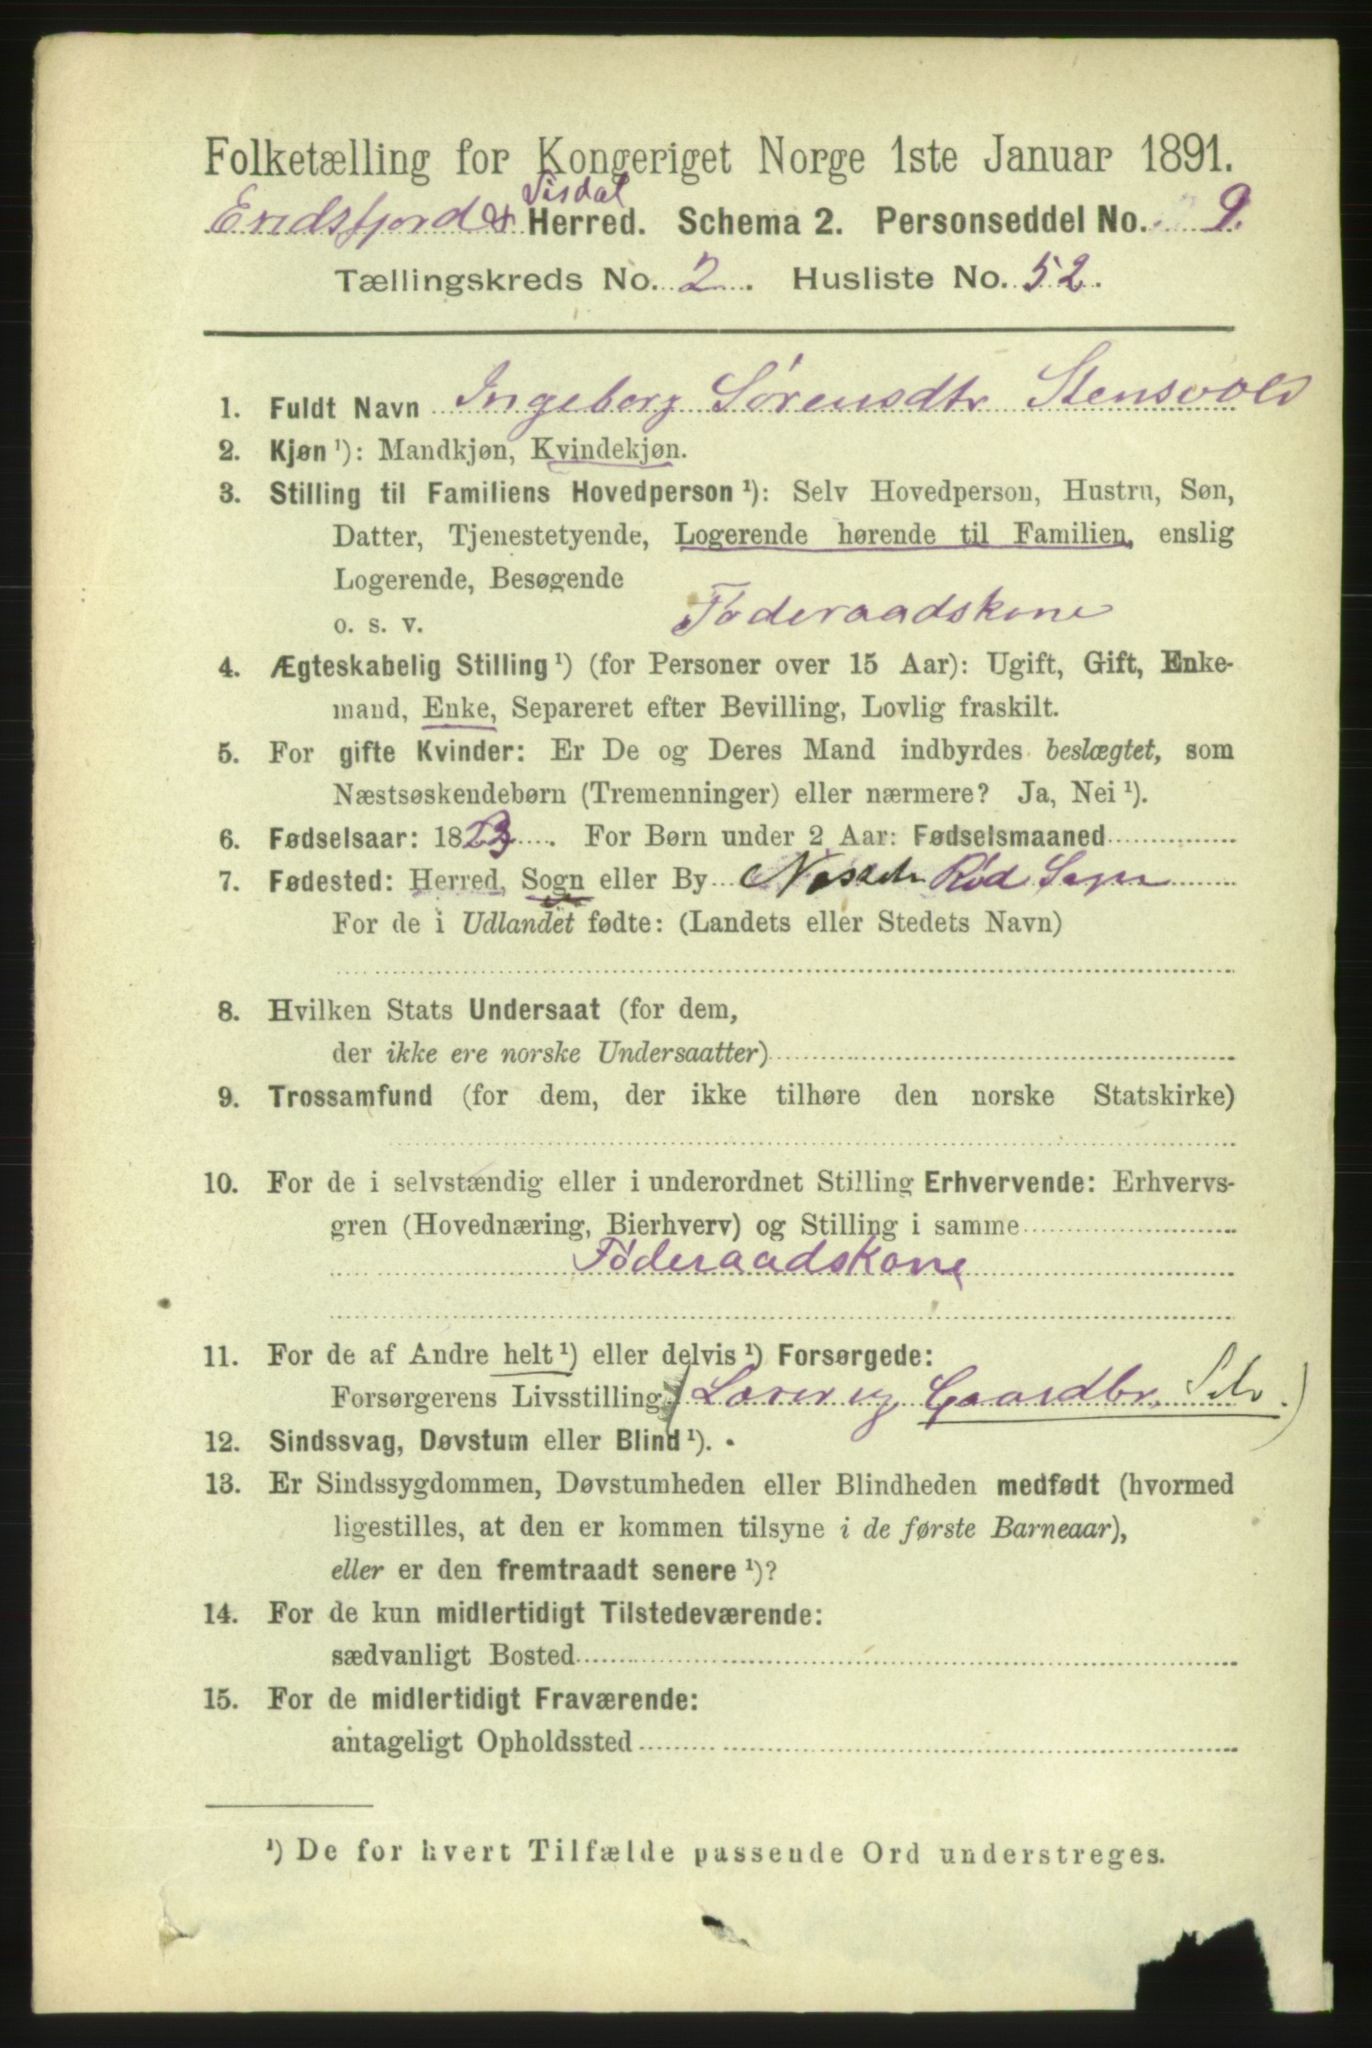 Folketælling for Kongeriget Norge 1ste Januar 1891.
Eridsfjord & Visdal Herred. Schema 2. Personseddel No. 9.
Tællingskreds No. 2. Husliste No. 52.
1. Fuldt Navn Ingeborg Sørensdtr Stensvold
2. Kjøn ¹): Mandkjøn, Kvindekjøn.
3. Stilling til Familiens Hovedperson ¹): Selv Hovedperson, Hustru, Søn,
Datter, Tjenestetyende, Logerende hørende til Familien, enslig
Logerende, Besøgende
o. s. v. Føderaadskone
4. Ægteskabelig Stilling ¹) (for Personer over 15 Aar): Ugift, Gift, Enke-
mand, Enke, Separeret efter Bevilling, Lovlig fraskilt.
5. For gifte Kvinder: Er De og Deres Mand indbyrdes beslægtet, som
Næstsøskendebørn (Tremenninger) eller nærmere? Ja, Nei ¹).
6. Fødselsaar: 1823. For Børn under 2 Aar: Fødselsmaaned
7. Fødested: Herred, Sogn eller By Nesset Rød Sogn
For de i Udlandet fødte: (Landets eller Stedets Navn)
8. Hvilken Stats Undersaat (for dem,
der ikke ere norske Undersaatter)
9. Trossamfund (for dem, der ikke tilhøre den norske Statskirke)
10. For de i selvstændig eller i underordnet Stilling Erhvervende: Erhvervs-
gren (Hovednæring, Bierhverv) og Stilling i samme
Føderaadskone
11. For de af Andre helt ¹) eller delvis ¹) Forsørgede:
Forsørgerens Livsstilling Gaardbr. Selv.)
12. Sindssvag, Døvstum eller Blind ¹).
13. Er Sindssygdommen, Døvstumheden eller Blindheden medfødt (hvormed
ligestilles, at den er kommen tilsyne i de første Barneaar),
eller er den fremtraadt senere ¹)?
14. For de kun midlertidigt Tilstedeværende:
sædvanligt Bosted
15. For de midlertidigt Fraværende:
antageligt Opholdssted
¹) De for hvert Tilfælde passende Ord understreges.